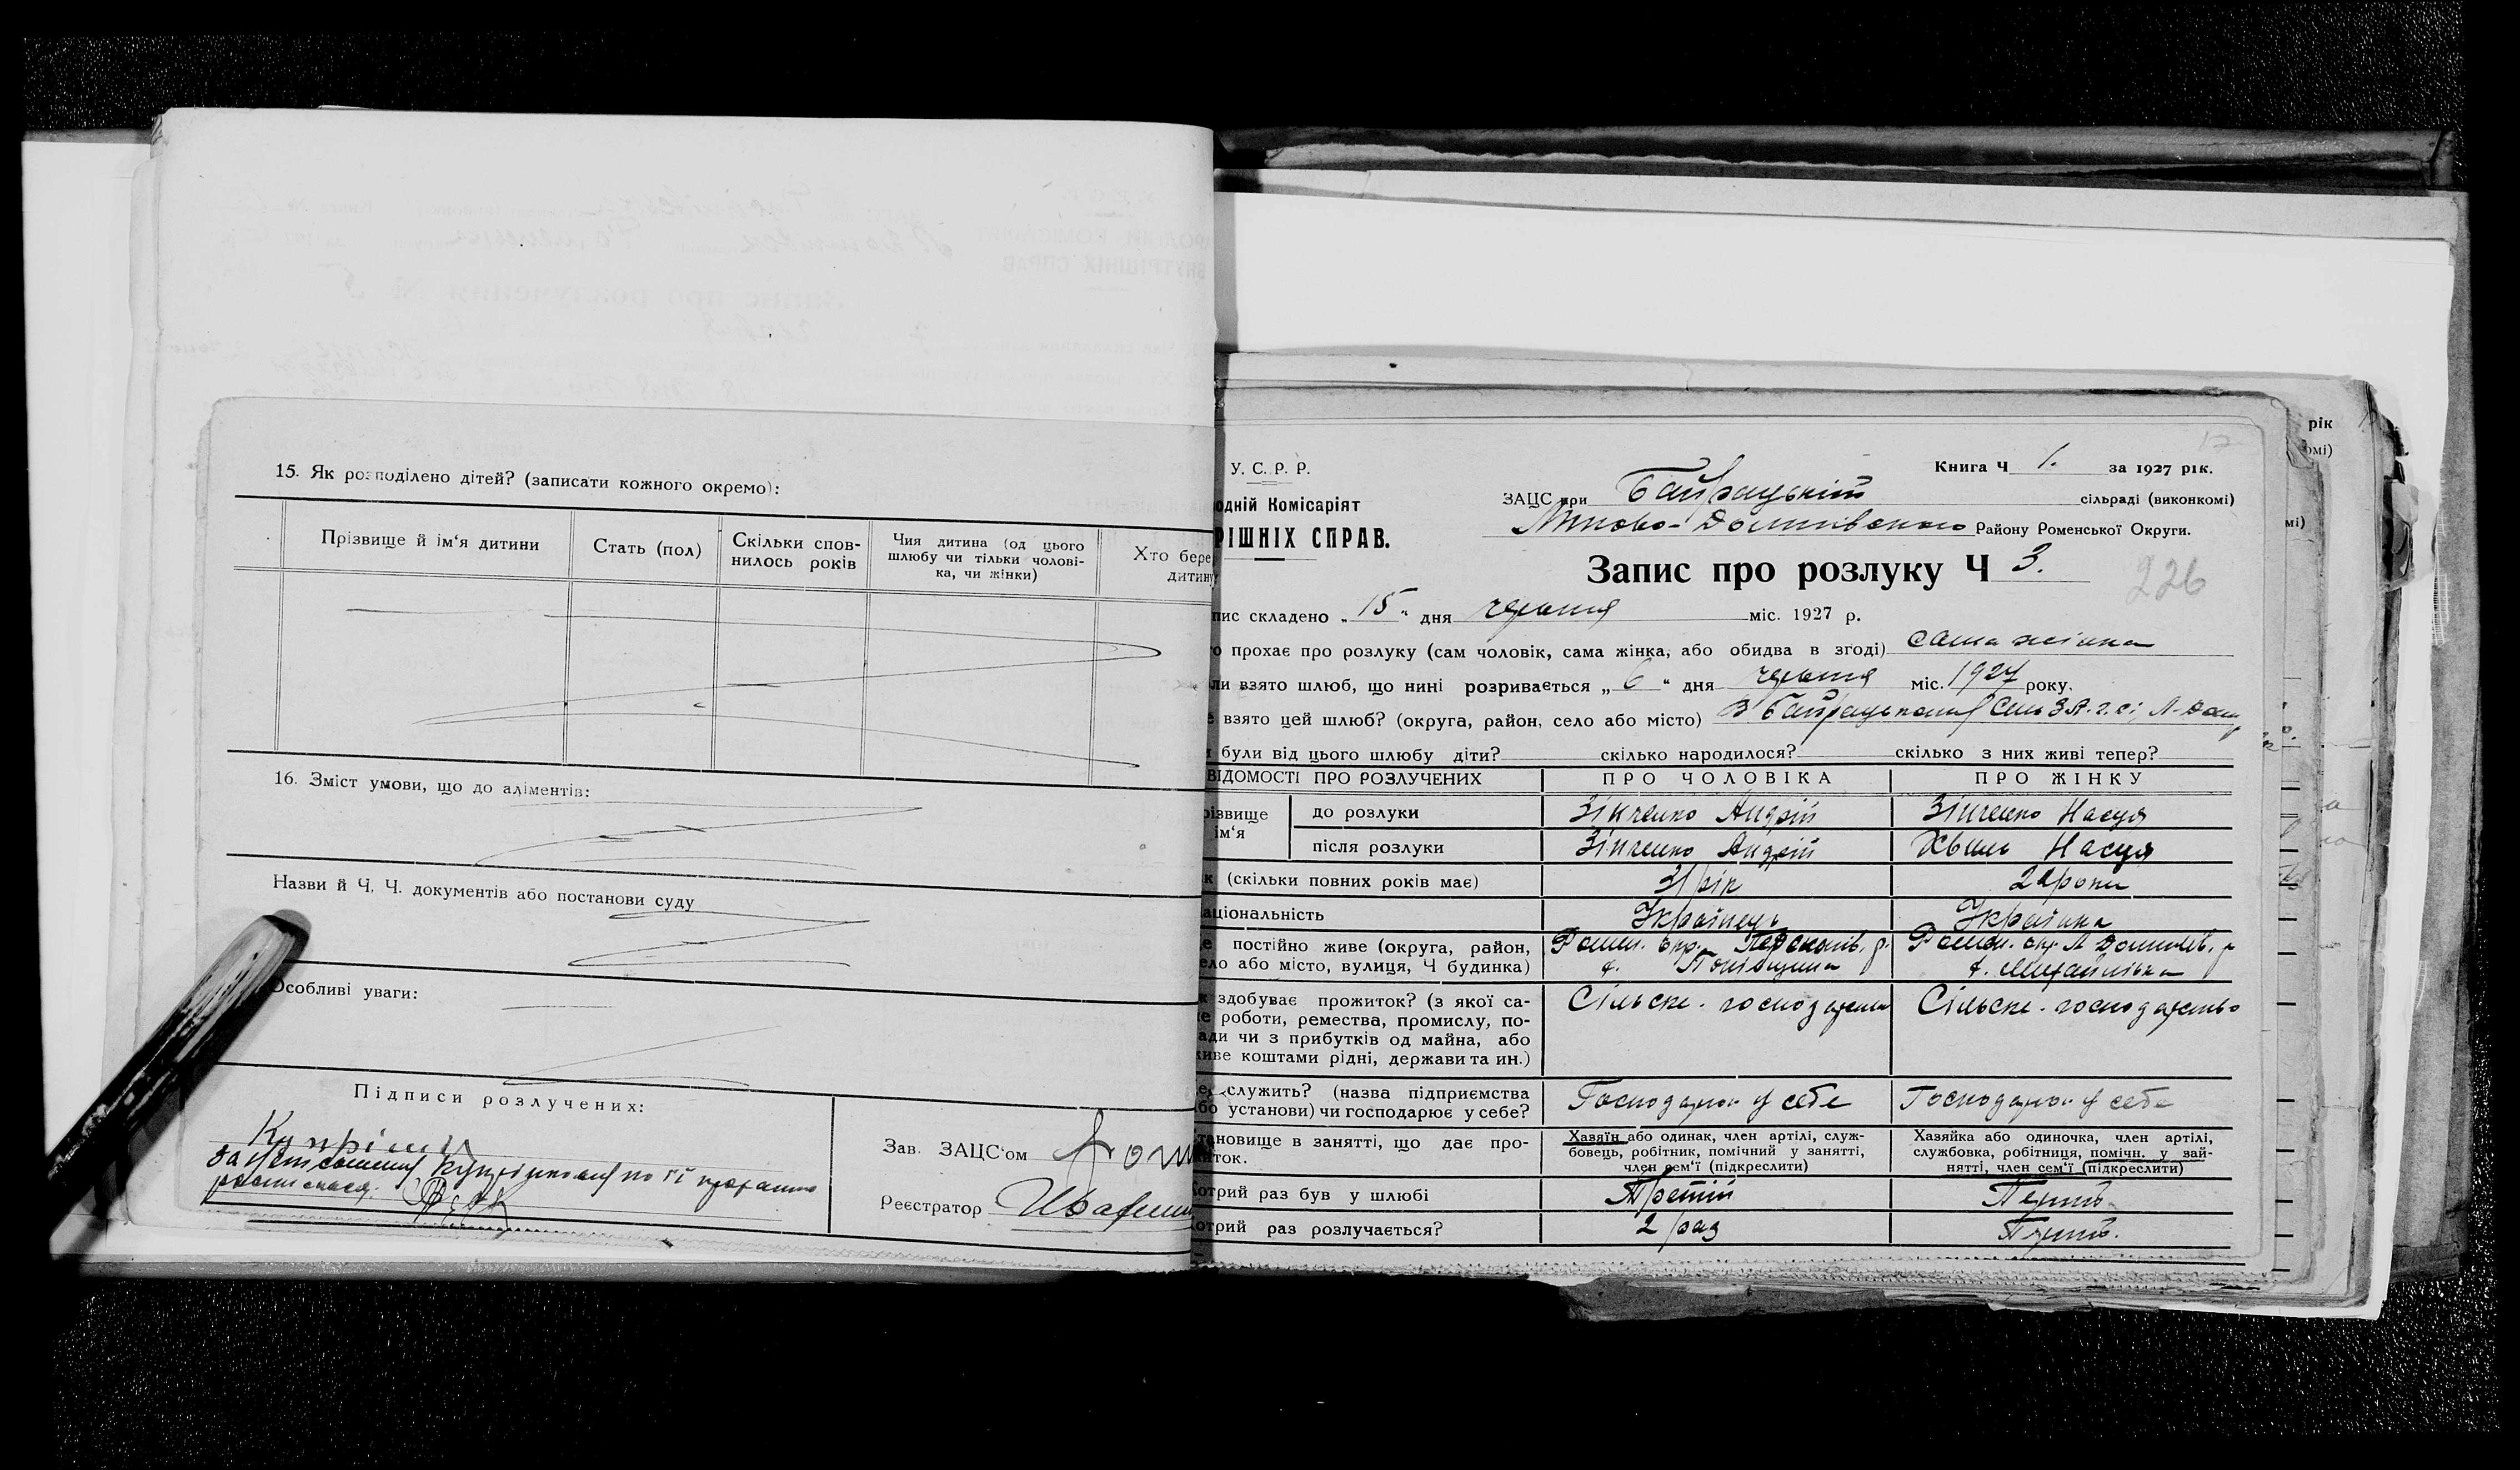 15. Як розподілено дітей? (записати кожного окремо):
Прізвище й ім'я дитини
Стать (пол)
Скільки спов-
нилось років
Чия дитина (од цього
шлюбу чи тільки чолові-
ка, чи жінки)
Хто бере
дитину
16. Зміст умови, що до аліментів:
Назви й Ч. Ч. документів або постанови суду
Особливі уваги:
Підписи розлучених:
по її проханню
Зав. ЗАЦС'ом
Реєстратор
рік
омі)
мі)
У. С. Р. Р.
одній Комісаріят
РІШНІХ СПРАВ.
Книга Ч 1. за 1927 рік.
ЗАЦС при Байрацькій сільраді (виконкомі)
Липово-Долинського Району Роменської Округи.
Запис про розлуку Ч 3.
226
пис складено „15" дня червня міс. 1927 р.
о прохає про розлуку (сам чоловік, сама жінка, або обидва в згоді) сама жінка
ли взято шлюб, що нині розривається „6" дня червня міс. 1927 року.
е взято цей шлюб? (округа, район, село або місто)
и були від цього шлюбу діти? скілько народилося? скілько з них живі тепер?
ВІДОМОСТІ ПРО РОЗЛУЧЕНИХ ПРО ЧОЛОВІКА ПРО ЖІНКУ
різвище
ім'я
до розлуки Зінченко Андрій Зінченко Настя
після розлуки Зінченко Андрій Хвиль Настя
к (скільки повних років має) 31 рік роки
аціональність Українець Українка
е постійно живе (округа, район, Ромен. окр. Ромен. окр. Л Долинськ. р
ело або місто, вулиця, Ч будинка) с. с. Михайлівка
к здобуває прожиток? (з якої са- Сільске-господарство Сільске-господарство
ме роботи, ремества, промислу, по-
ади чи з прибутків од майна, або
живе коштами рідні, держави та ин.)
е служить? (назва підприємства Господарює у себе Господарює у себе
бо установи) чи господарює у себе?
тановище в занятті, що дає про-
житок.
Хазяїн або одинак, член артілі, служ-
бовець, робітник, помічний у занятті,
член сем'ї (підкреслити)
Хазяйка або одиночка, член артілі,
службовка, робітниця, помічн. у зай-
нятті, член сем'ї (підкреслити)
Котрий раз був у шлюбі Третій Перший
отрий раз розлучається? 2 раз Перший.